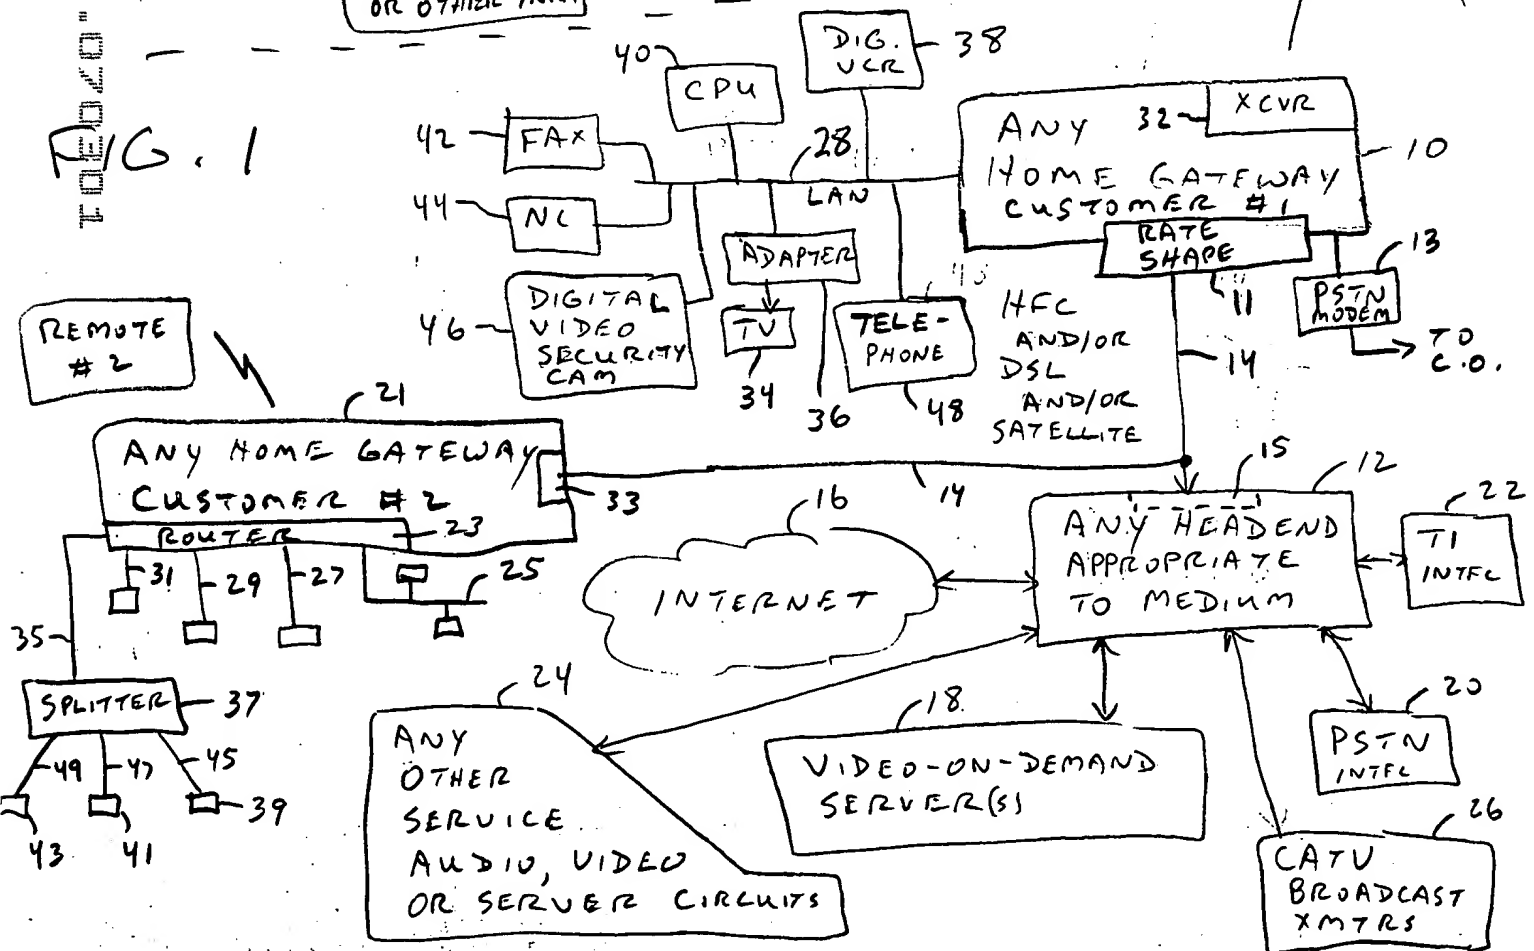 OR OTHER
FIG. 1
40
CPU
DIG.
VCR
38
42
FAX
28
LAN
44
NC
ANY
HOME GATEWAY
CUSTOMER #1
32
XCVR
10
RATE
SHAPE
11
13
PSTN
MODEM
TO
C.O.
ADAPTER
TV
34
36
46
DIGITAL
VIDEO
SECURITY
CAM
TELE-
PHONE
48
HFC
AND/OR
DSL
AND/OR
SATELLITE
14
REMOTE
#2
21
ANY HOME GATEWAY
CUSTOMER #2
33
14
ROUTER
23
31
29
27
25
35
SPLITTER
37
49
47
45
43
41
39
16
INTERNET
15
12
ANY HEADEND
APPROPRIATE
TO MEDIUM
22
T1
INTFC
24
ANY
OTHER
SERVICE
AUDIO, VIDEO
OR SERVER CIRCUITS
18
VIDEO-ON-DEMAND
SERVER(S)
20
PSTN
INTFC
26
CATV
BROADCAST
XMTRS